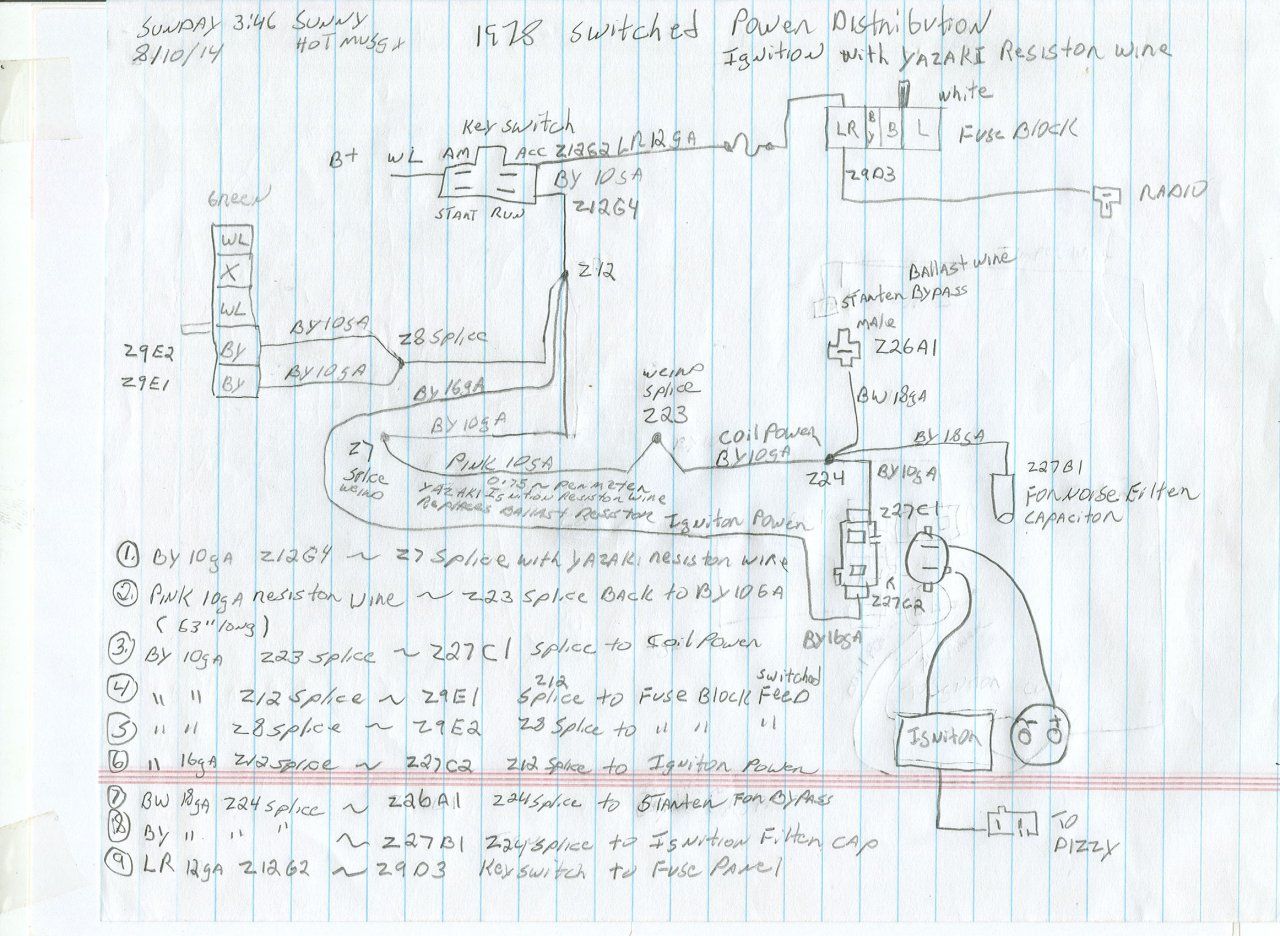 SUNDAY 3:46 SUNNY
8/10/14 HOT MUGGY
1978 Switched Power Distribution
Ignition with YAZAKI Resistor wire
Key switch
B+ WL AM ACC Z12G2 LR 12gA
BY 10gA
Z12G4
START RUN
White
LR BY B L Fuse Block
Z9D3
RADIO
Green
WL
X
WL
BY
BY
Z9E2
Z9E1
BY 10gA
BY 10gA
Z8 Splice
Z12
BY 16gA
BY 10gA
Z7
Splice
PINK 10gA
0.75 ~ per meter
YAZAKI Ignition Resistor wire
Replaces Ballast Resistor
splice
Z23
Coil Power
BY 10gA
Ballast wire
STARTER BYPASS
MAle
Z26A1
BW 18gA
BY 18gA
Z24
BY 10gA
Z27B1
FOR NOISE Filter
CAPACITOR
Z27C1
Z27C2
Igniton Power
BY 16gA
Igniton
- +
TO
DIZZY
1. BY 10gA Z12G4 ~ Z7 Splice with YAZAKI resistor wire
2. PINK 10gA resistor wire ~ Z23 Splice BACK to BY 10GA
(63" long)
3. BY 10gA Z23 splice ~ Z27C1 splice to Coil Power
4 " " Z12 Splice ~ Z9E1 Z12 Splice to Fuse Block switched FEED
5 " " Z8 Splice ~ Z9E2 Z8 Splice to " " "
6 " 16gA Z12 Splice ~ Z27C2 Z12 Splice to Igniton Power
7 BW 18gA Z24 Splice ~ Z26A1 Z24 Splice to STARTER FOR BYPASS
8 BY " " " ~ Z27B1 Z24 Splice to Ignition Filter CAP
9 LR 12gA Z12G2 ~ Z9D3 Key switch to Fuse Panel